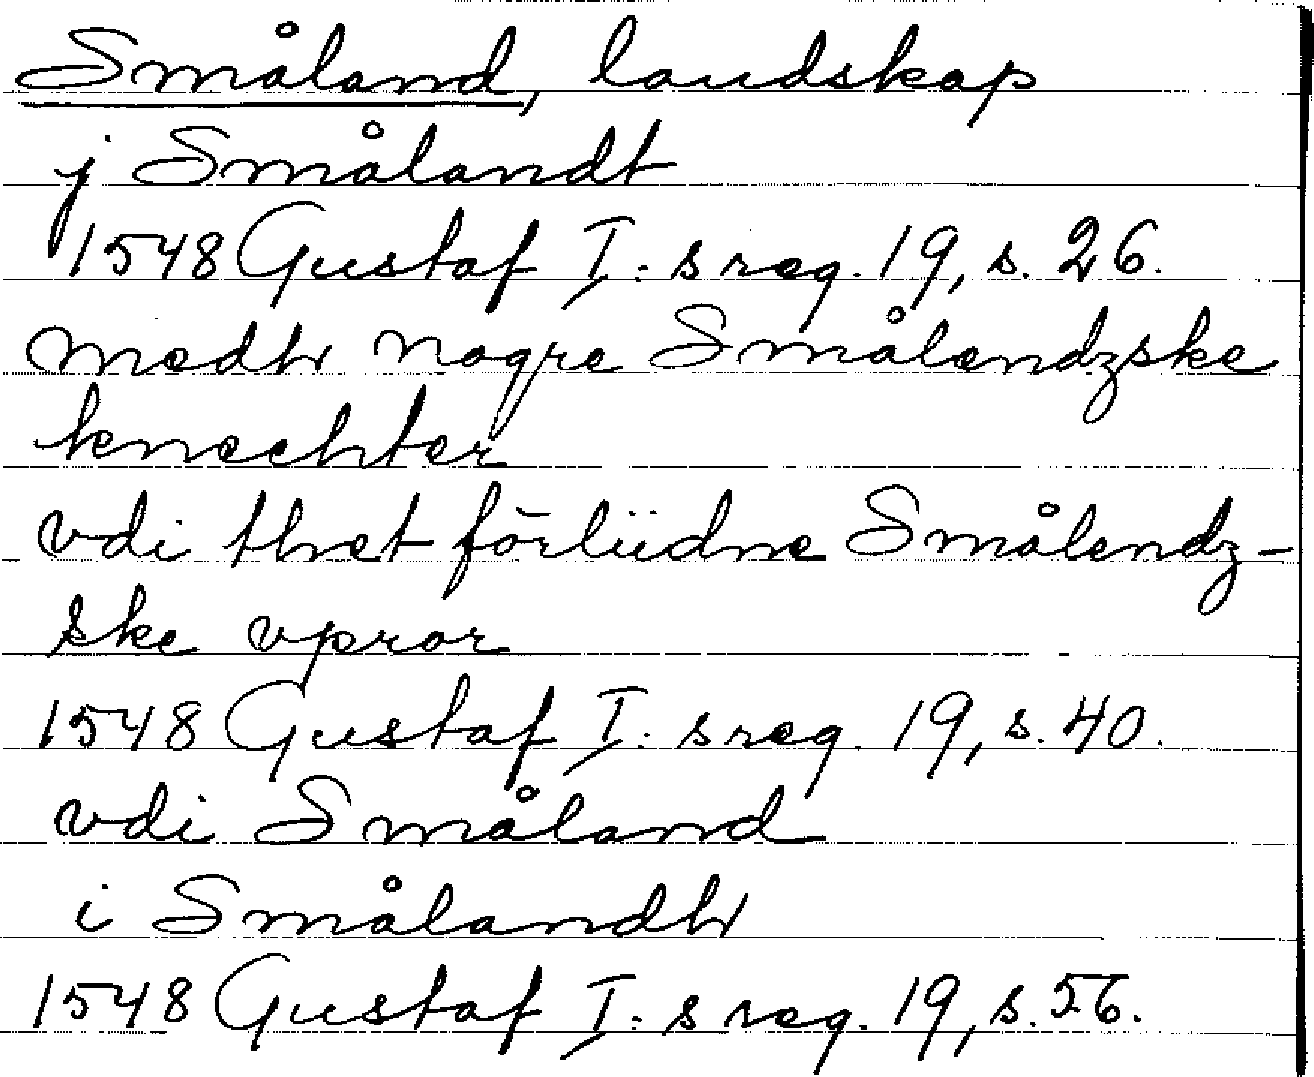 Småland, landskap
j Smålandt
1548 Gustaf I:s reg. 19, s. 26.
medh nogre Smålendzske
knechter
vdi thet förliidne Smålendz-
ske vpror
1548 Gustaf I:s reg. 19, s. 40.
vdi Småland
i Smålandh
1548 Gustaf I:s reg. 19, s. 56.